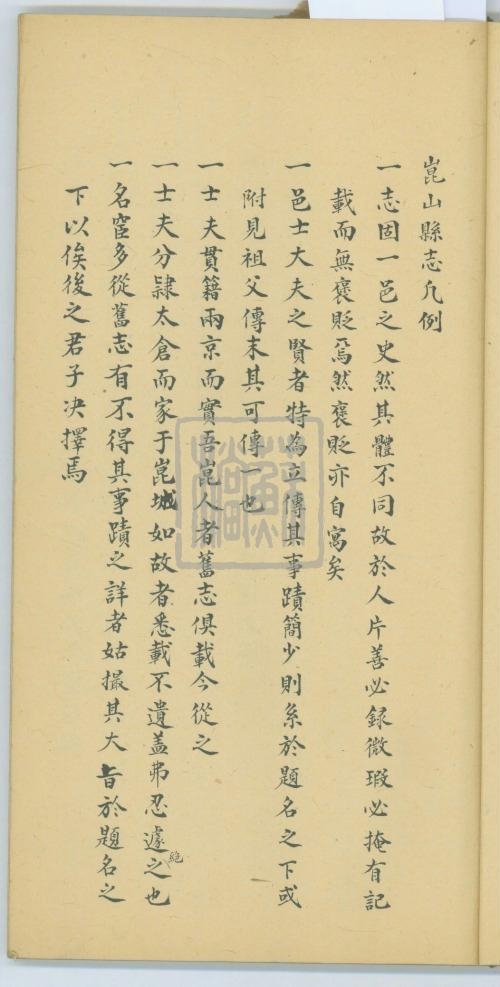 崑山縣志凡例
一志固一邑之史然其體不同故於人片善必録微瑕必掩有記
載而無褒貶焉然褒貶亦自寓矣
一邑士大夫之賢者特為立傳其事蹟簡少則系於題名之下或
附見祖父傳末其可傳一也
一士夫貫籍兩京而實吾崑人者舊志俱載今從之
一士夫分隷太倉而家于崑城如故者悉載不遺盖弗忍遽絶之也
一名宦多從舊志有不得其事蹟之詳者姑撮其大㫖於題名之
下以俟後之君子决擇焉